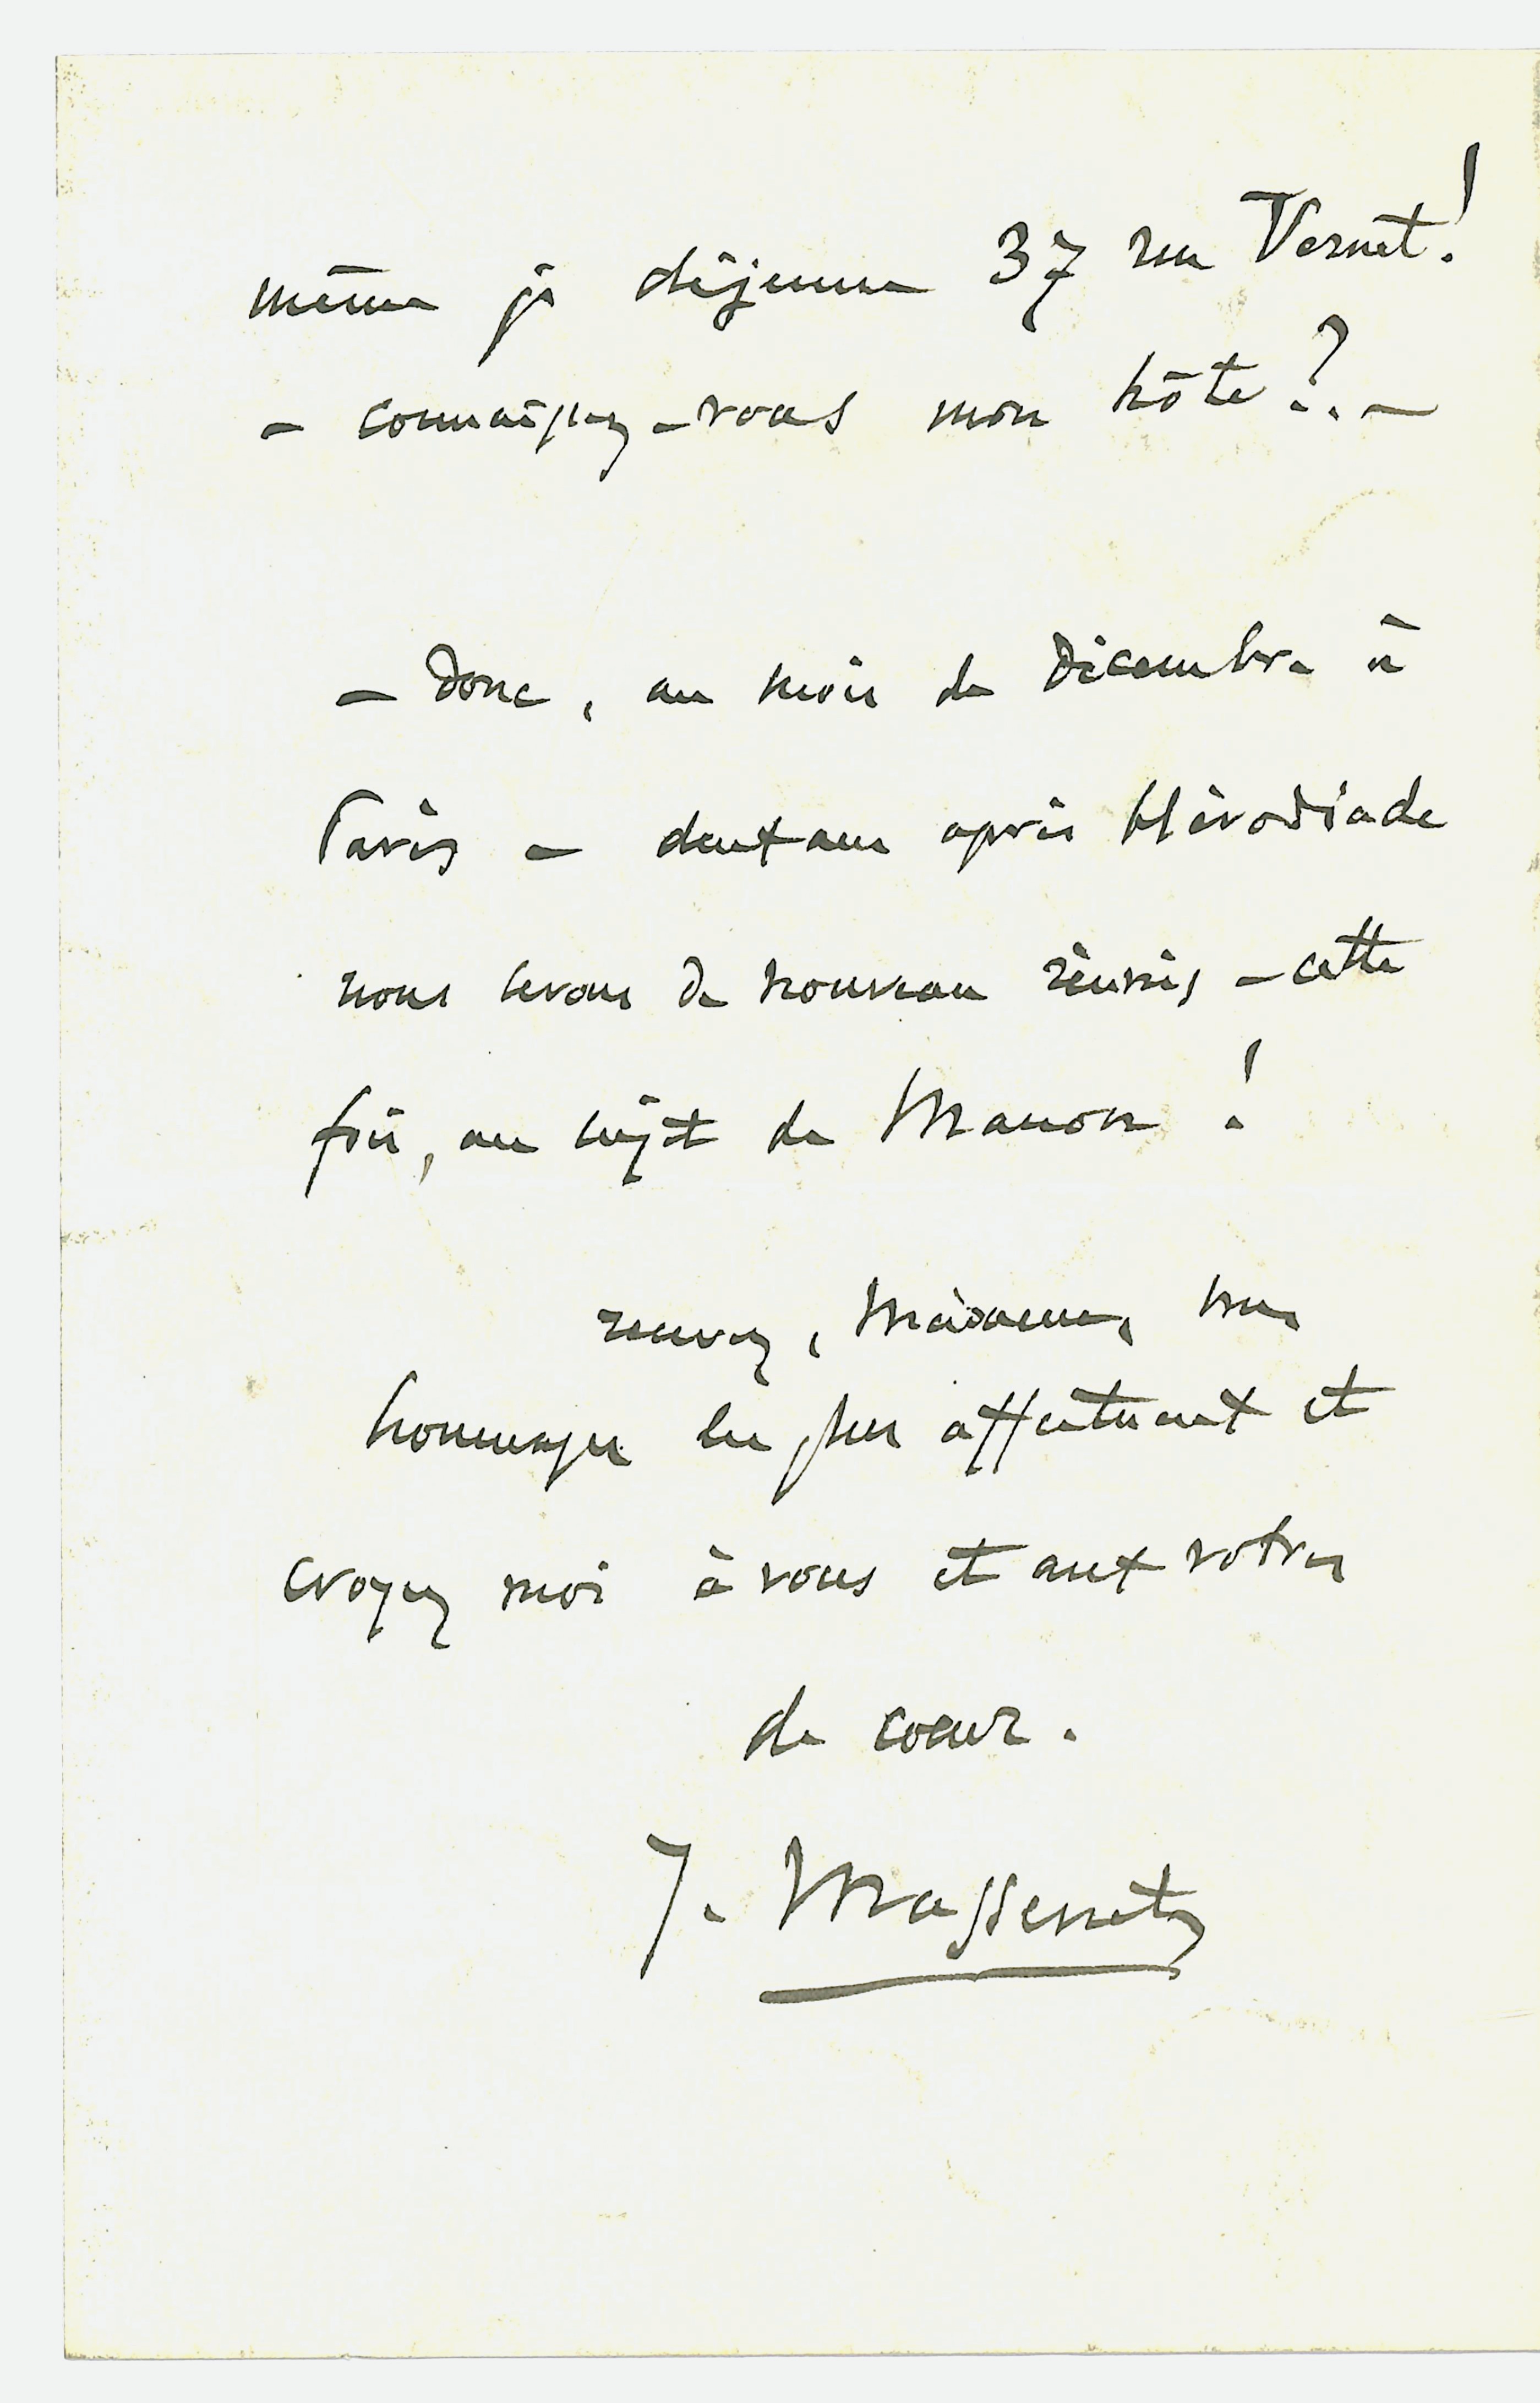 même je déjeune 37 rue Vernet!
– connaissez-vous mon hôte?. –
– Donc, au mois de Décembre à
Paris – deux ans après Hérodiade
nous serons de nouveau réunis – cette
fois, au sujet de Manon !
recevez, Madame, mes
hommages les plus affectueux et
croyez moi à vous et aux votres
de coeur.
J. Massenet